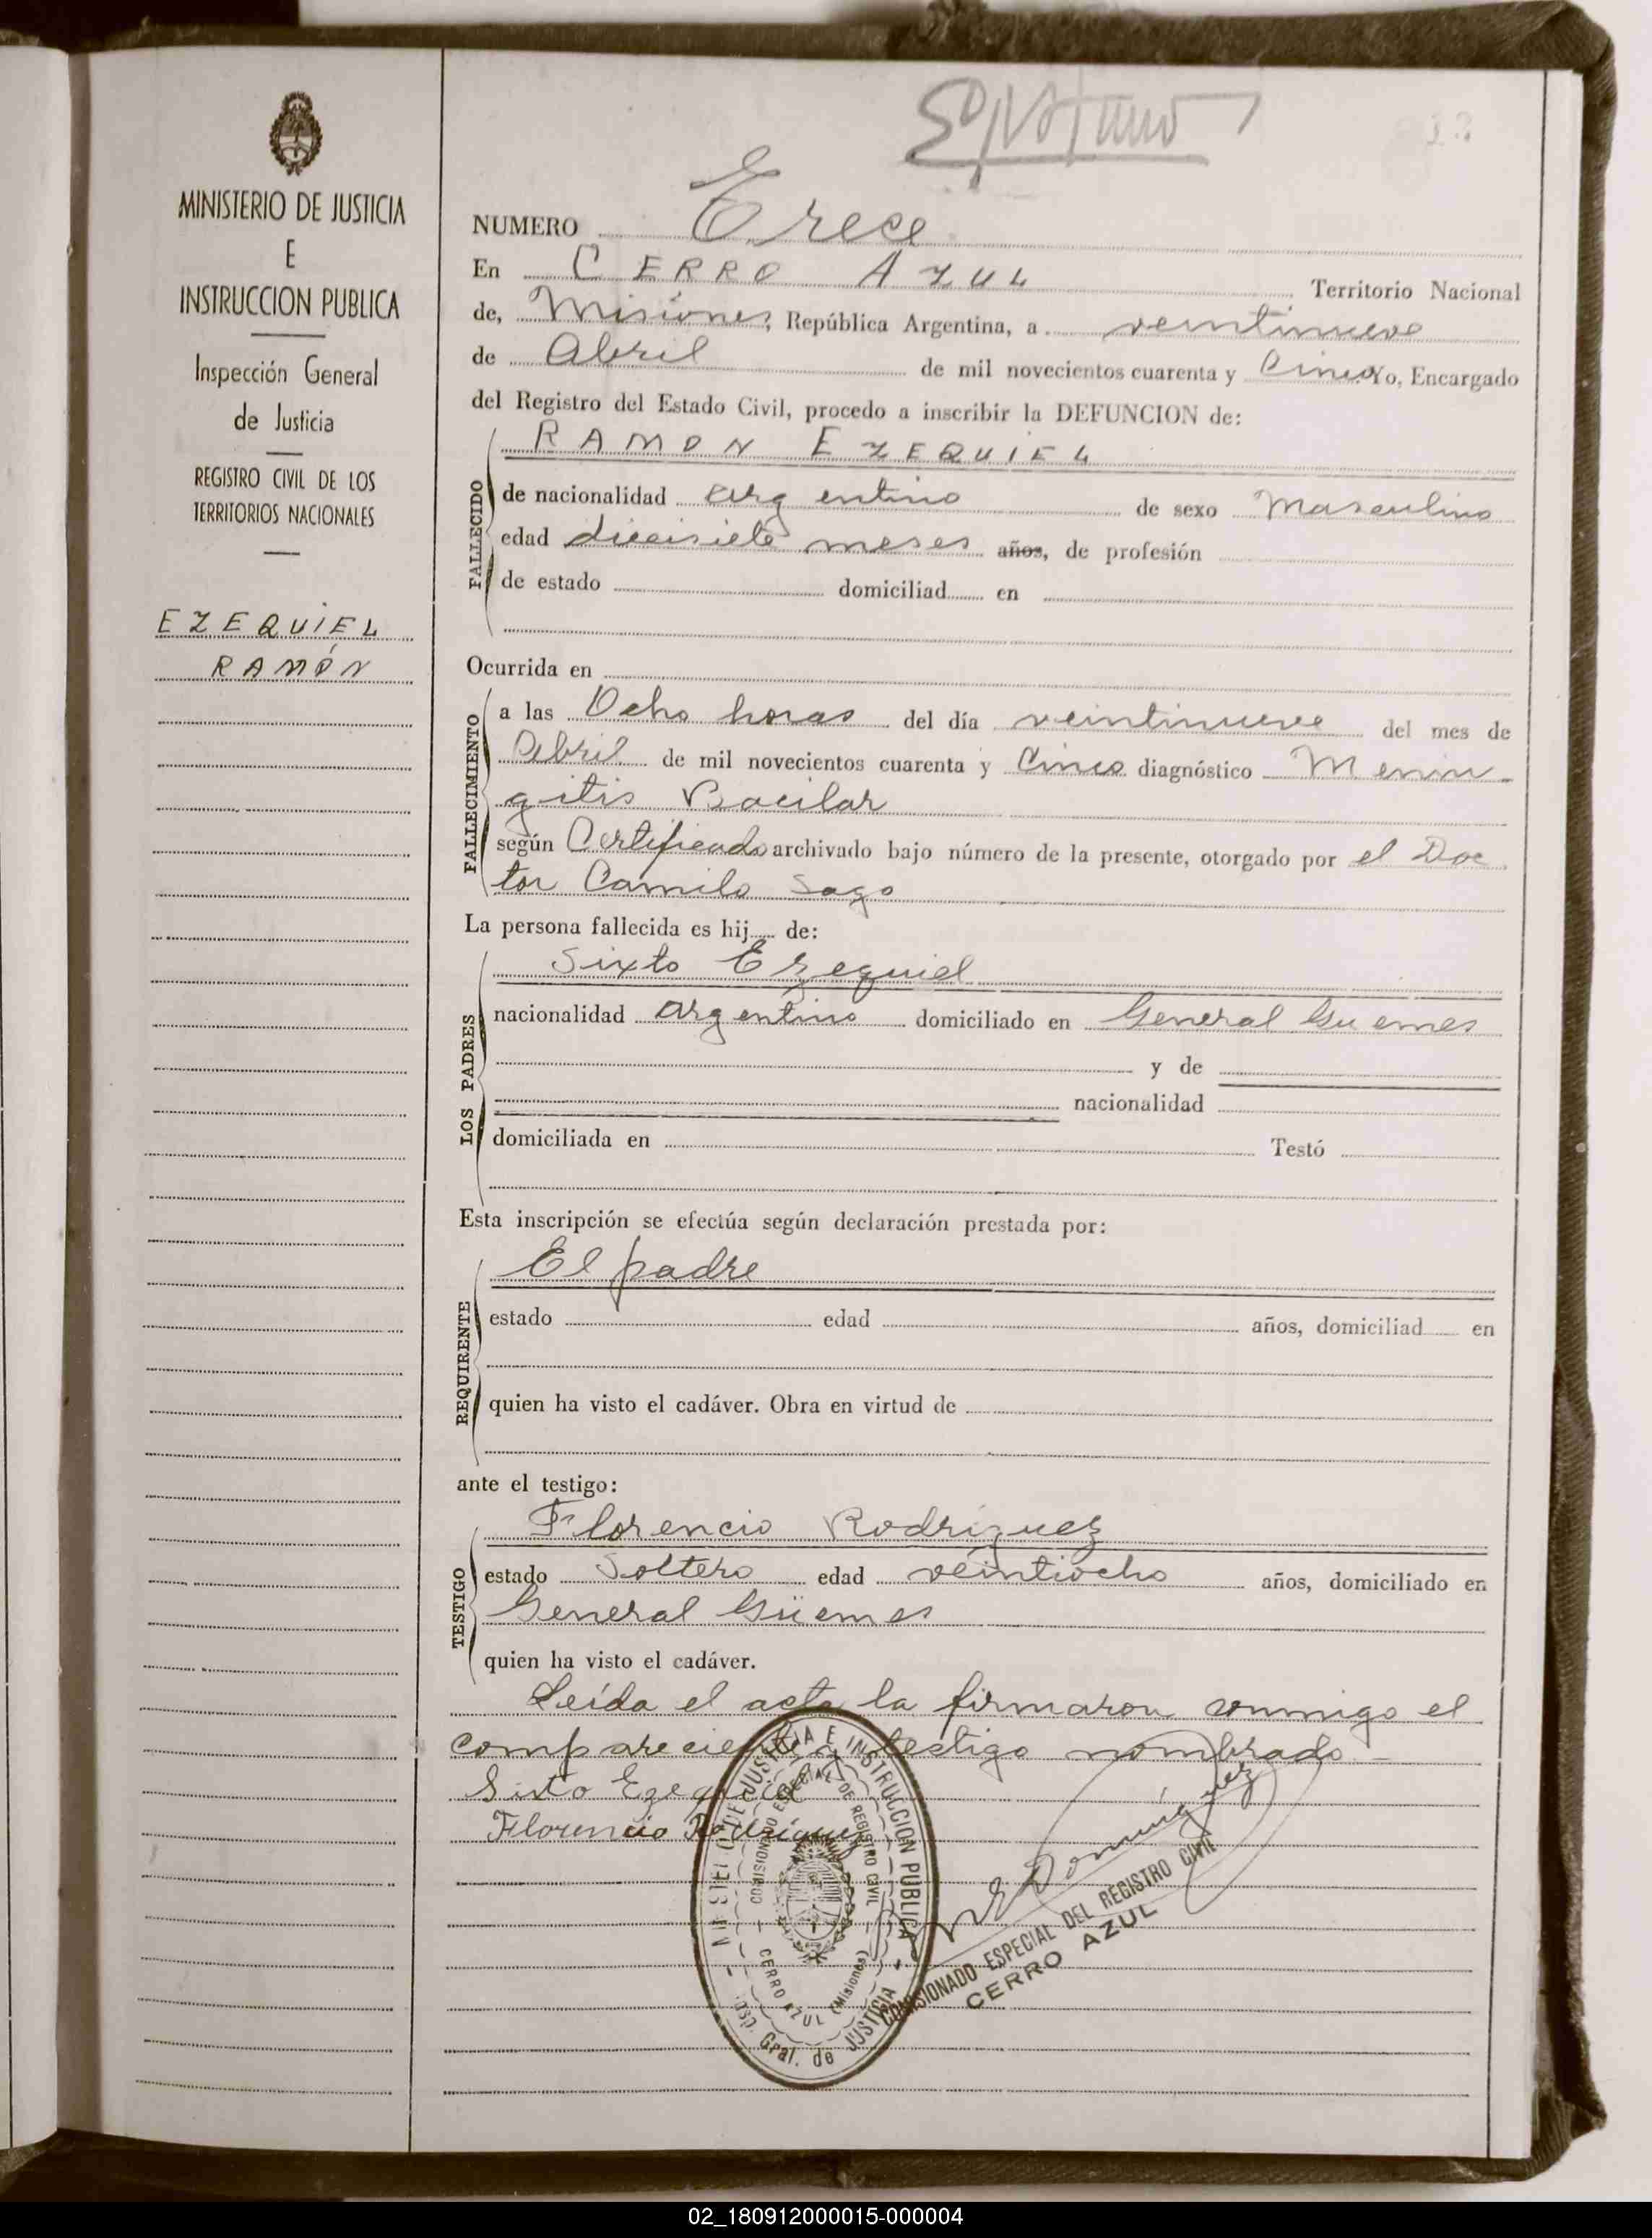 MINISTERIO DE JUSTICIA
E
INSTRUCCION PUBLICA
Inspección General
de Justicia
REGISTRO CIVIL DE LOS
TERRITORIOS NACIONALES
EZEQUIEL
RAMÓN
NUMERO Trece
En CERRO AZUL Territorio Nacional
de, Misiones, República Argentina, a veintinueve
de Abril de mil novecientos cuarenta y Cinco Yo, Encargado
del Registro del Estado Civil, procedo a inscribir la DEFUNCION de:
RAMON EZEQUIEL
FALLECIDO
de nacionalidad argentino de sexo Masculino
edad diecisiete meses años, de profesión
de estado domiciliad en
Ocurrida en
FALLECIMIENTO
a las Ocho horas del día veintinueve del mes de
Abril de mil novecientos cuarenta y Cinco diagnóstico Menin-
gitis Bacilar
según Certificado archivado bajo número de la presente, otorgado por el Doc
tor Camilo Sago
La persona fallecida es hij de:
LOS PADRES
Sixto Ezequiel
nacionalidad argentino domiciliado en General Guemes
y de
nacionalidad
domiciliada en Testó
Esta inscripción se efectúa según declaración prestada por:
REQUIRENTE
El padre
estado edad años, domiciliad en
quien ha visto el cadáver. Obra en virtud de
ante el testigo:
TESTIGO
Florencio Rodríguez
estado Soltero edad veintiocho años, domiciliado en
General Güemes
quien ha visto el cadáver.
Leída el acta la firmaron conmigo el
compareciente y testigo nombrado.-
Sixto Ezequiel
Florencio Rodriguez
MINISTERIO DE JUSTICIA E INSTRUCCION PUBLICA
Insp. Gral. de JUSTICIA
COMISIONADO ESPECIAL DE REGISTRO CIVIL
CERRO AZUL (Misiones)
Domínguez
COMISIONADO ESPECIAL DEL REGISTRO CIVIL
CERRO AZUL
02_180912000015-000004